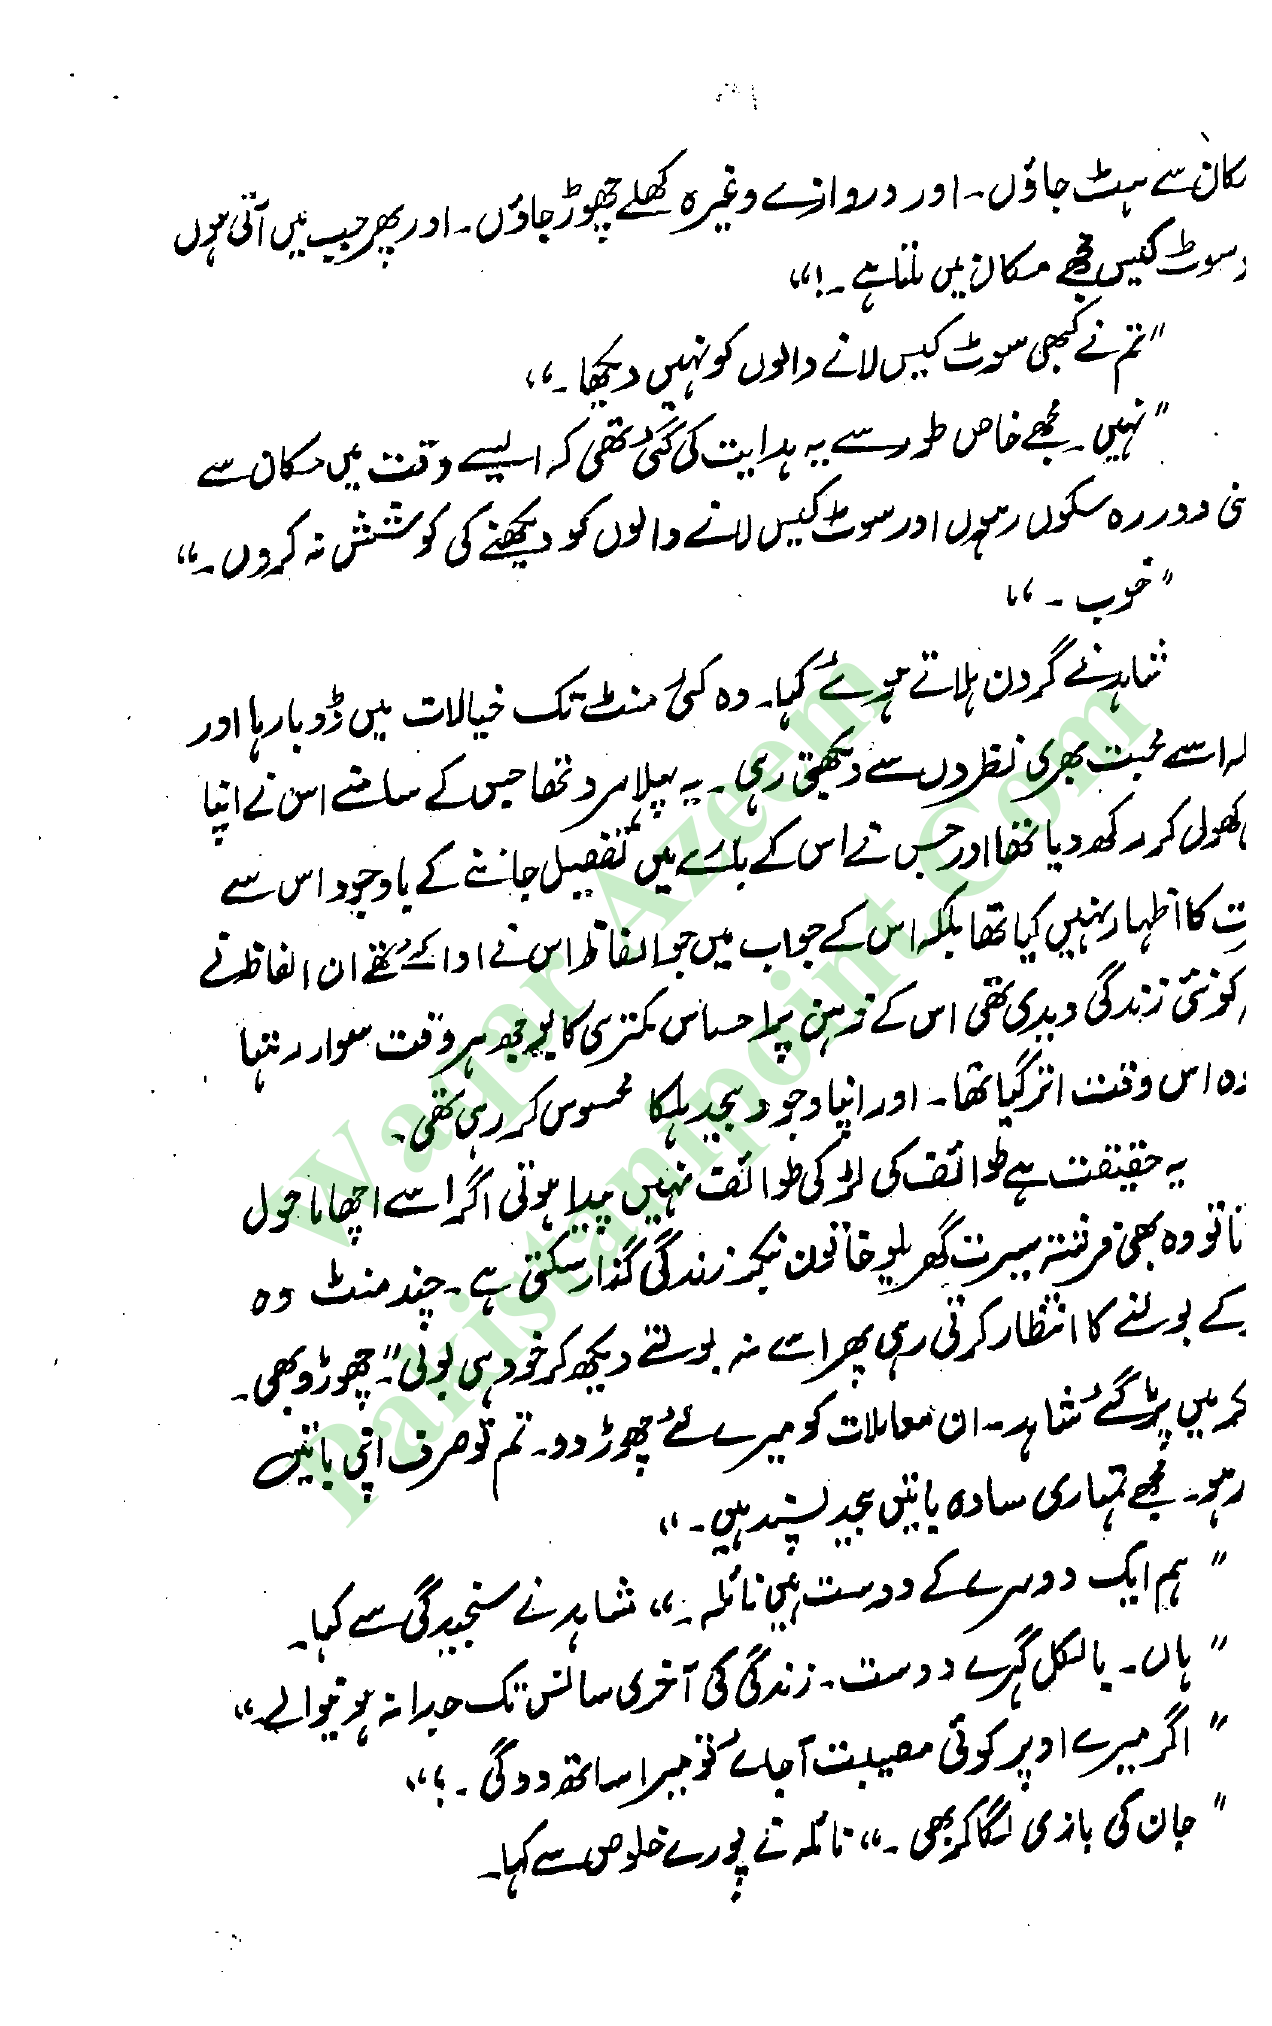 مکان سے ہٹ جاؤں۔ اور دروازے وغیرہ کھلے چھوڑ جاؤں۔ اور پھر جب میں آتی ہوں
سوٹ کیس مجھے مکان میں ملتا ہے۔!“
”تم نے کبھی سوٹ کیس لانے والوں کو نہیں دیکھا۔“
”نہیں۔ مجھے خاص طور سے یہ ہدایت کی گئی تھی کہ ایسے وقت میں مکان سے
دور رہ سکوں رہوں اور سوٹ کیس لانے والوں کو دیکھنے کی کوشش نہ کروں۔“
”خوب۔“
شاہد نے گردن ہلاتے ہوئے کہا۔ وہ کئی منٹ تک خیالات میں ڈوبا رہا اور
اسے محبت بھری نظروں سے دیکھتی رہی۔ یہ پہلا مرد تھا جس کے سامنے اس نے اپنا
کھول کر رکھ دیا تھا اور جس نے اس کے بارے میں تفصیل جاننے کے باوجود اس سے
کا اظہار نہیں کیا تھا بلکہ اس کے جواب میں جو الفاظ اس نے ادا کئے تھے ان الفاظ نے
کو نئی زندگی دیدی تھی اس کے ذہن پر احساس کمتری کا بوجھ ہر وقت سوار رہتا
وہ اس وقت اتر گیا تھا۔ اور اپنا وجود بیحد ہلکا محسوس کر رہی تھی۔
یہ حقیقت ہے طوائف کی لڑکی طوائف نہیں پیدا ہوتی اگر اسے اچھا ماحول
تو وہ بھی فرشتہ سیرت گھریلو خاتون بنکر زندگی گذار سکتی ہے۔ چند منٹ وہ
کے بولنے کا انتظار کرتی رہی پھر اسے نہ بولتے دیکھ کر خود ہی بولی۔ ”چھوڑو بھی۔
میں پڑ گئے شاہد۔ ان معاملات کو میرے لئے چھوڑ دو۔ تم تو صرف اپنی باتیں
رہو۔ مجھے تمہاری سادہ باتیں بیحد پسند ہیں۔“
”ہم ایک دوسرے کے دوست ہیں نائلہ۔“ شاہد نے سنجیدگی سے کہا۔
”ہاں۔ بالکل گہرے دوست۔ زندگی کی آخری سانس تک جدا نہ ہونیوالے۔“
”اگر میرے اوپر کوئی مصیبت آجائے تو میرا ساتھ دوگی۔؟“
”جان کی بازی لگا کر بھی۔“ نائلہ نے پورے خلوص سے کہا۔
Waqar Azeem
Pakistanipoint.Com